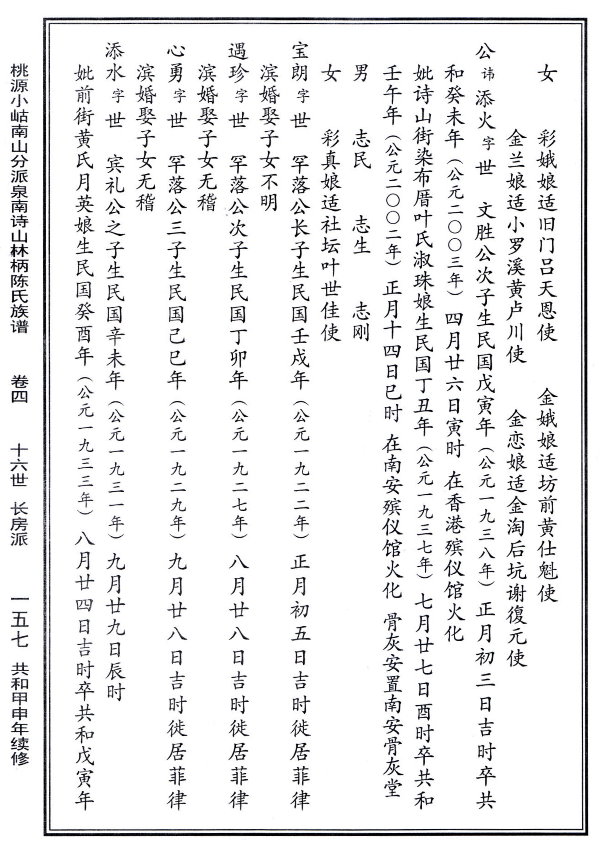 女　彩娥娘适旧门吕天恩使　金娥娘适坊前黄仕魁使
金兰娘适小罗溪黄卢川使　金恋娘适金淘后坑谢復元使
公讳添火字世　文胜公次子生民国戊寅年（公元一九三八年）正月初三日吉时卒共
和癸未年（公元二〇〇三年）四月廿六日寅时　在香港殡仪馆火化
妣诗山街染布厝叶氏淑珠娘生民国丁丑年（公元一九三七年）七月廿七日酉时卒共和
壬午年（公元二〇〇二年）正月十四日巳时　在南安殡仪馆火化　骨灰安置南安骨灰堂
男　志民　志生　志刚
女　彩真娘适社坛叶世佳使
宝朗字世　罕落公长子生民国壬戍年（公元一九二二年）正月初五日吉时徙居菲律
滨婚娶子女不明
遇珍字世　罕落公次子生民国丁卯年（公元一九二七年）八月廿八日吉时徙居菲律
滨婚娶子女无稽
心勇字世　罕落公三子生民国己巳年（公元一九二九年）九月廿八日吉时徙居菲律
滨婚娶子女无稽
添水字世　宾礼公之子生民国辛未年（公元一九三一年）九月廿九日辰时
妣前街黄氏月英娘生民国癸酉年（公元一九三三年）八月廿四日吉时卒共和戊寅年
桃源小岵南山分派泉南诗山林柄陈氏族谱　卷四　十六世　长房派　一五七　共和甲申年续修